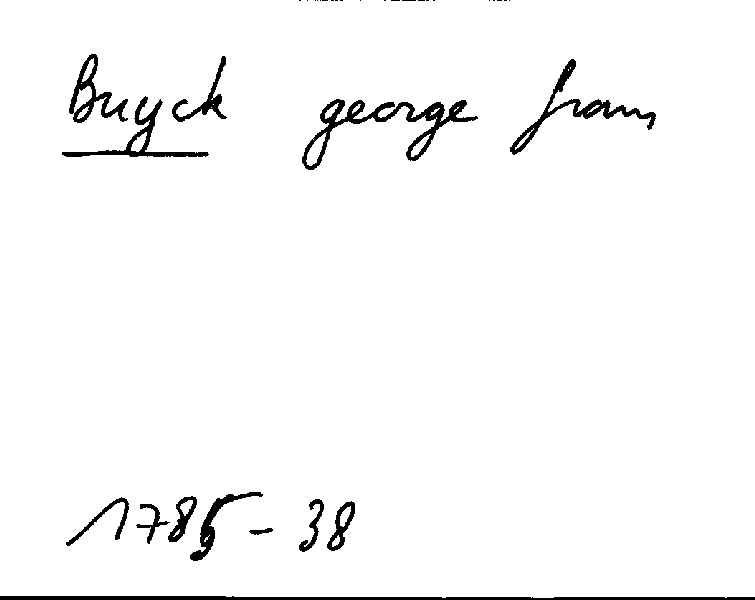 Buyck george frans
1785 - 38